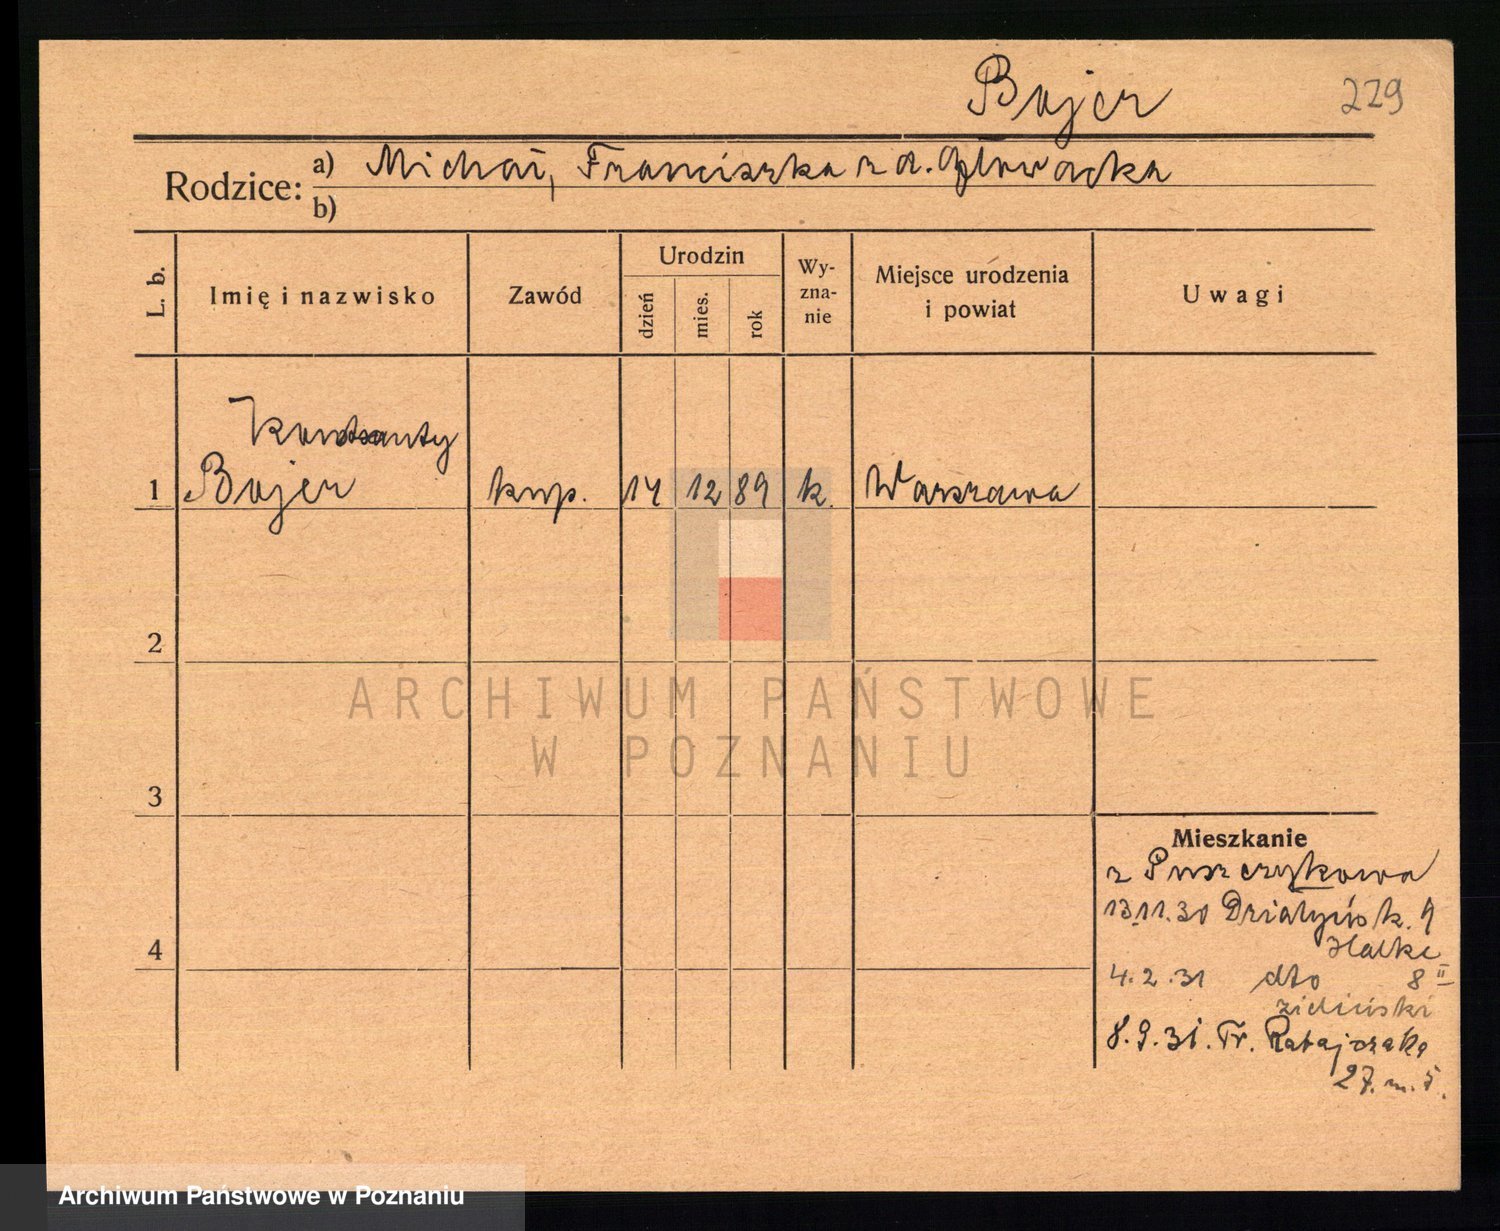 Bojer
229
Rodzice: a) Michał, Franciszka z d. Głowacka
b)
L. b.
Imię i nazwisko
Zawód
Urodzin
dzień
mies.
rok
Wy-
zna-
nie
Miejsce urodzenia
i powiat
Uwagi
Konstanty
1 Bojer kup. 14 12 89 k. Warszawa
2
ARCHIWUM PAŃSTWOWE
W POZNANIU
3
Mieszkanie
z Puszczykowa
13.11.30 Działyńsk. 9
4
4.2.31 dto 8 II
8.9.31. Fr. Ratajczaka
27. m. 5.
Archiwum Państwowe w Poznaniu